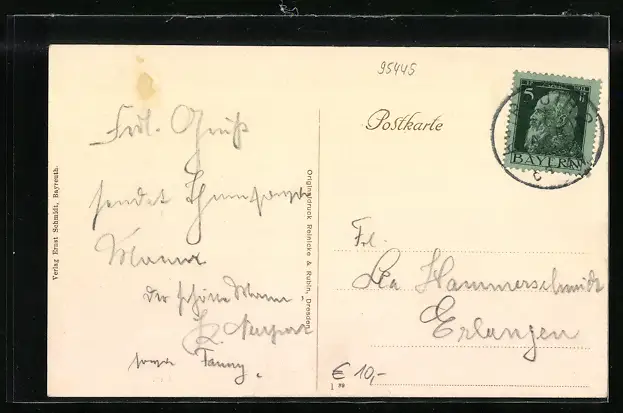 95445
Postkarte
5
BAYERN
Frdl. Gruß
sendet
Mama
der schöne Mann,
sowie Fanny.
Verlag Ernst Schmidt, Bayreuth.
Originaldruck Reinicke & Rubin, Dresden
Frl.
Lea Hammerschmidt
Erlangen
€ 10,-